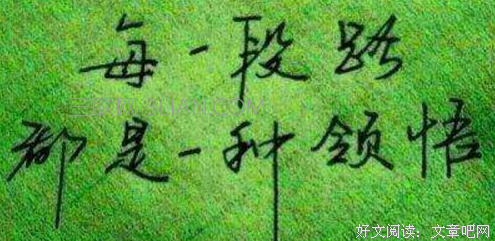 每一段路
都是一种领悟
好文阅读：文章吧网